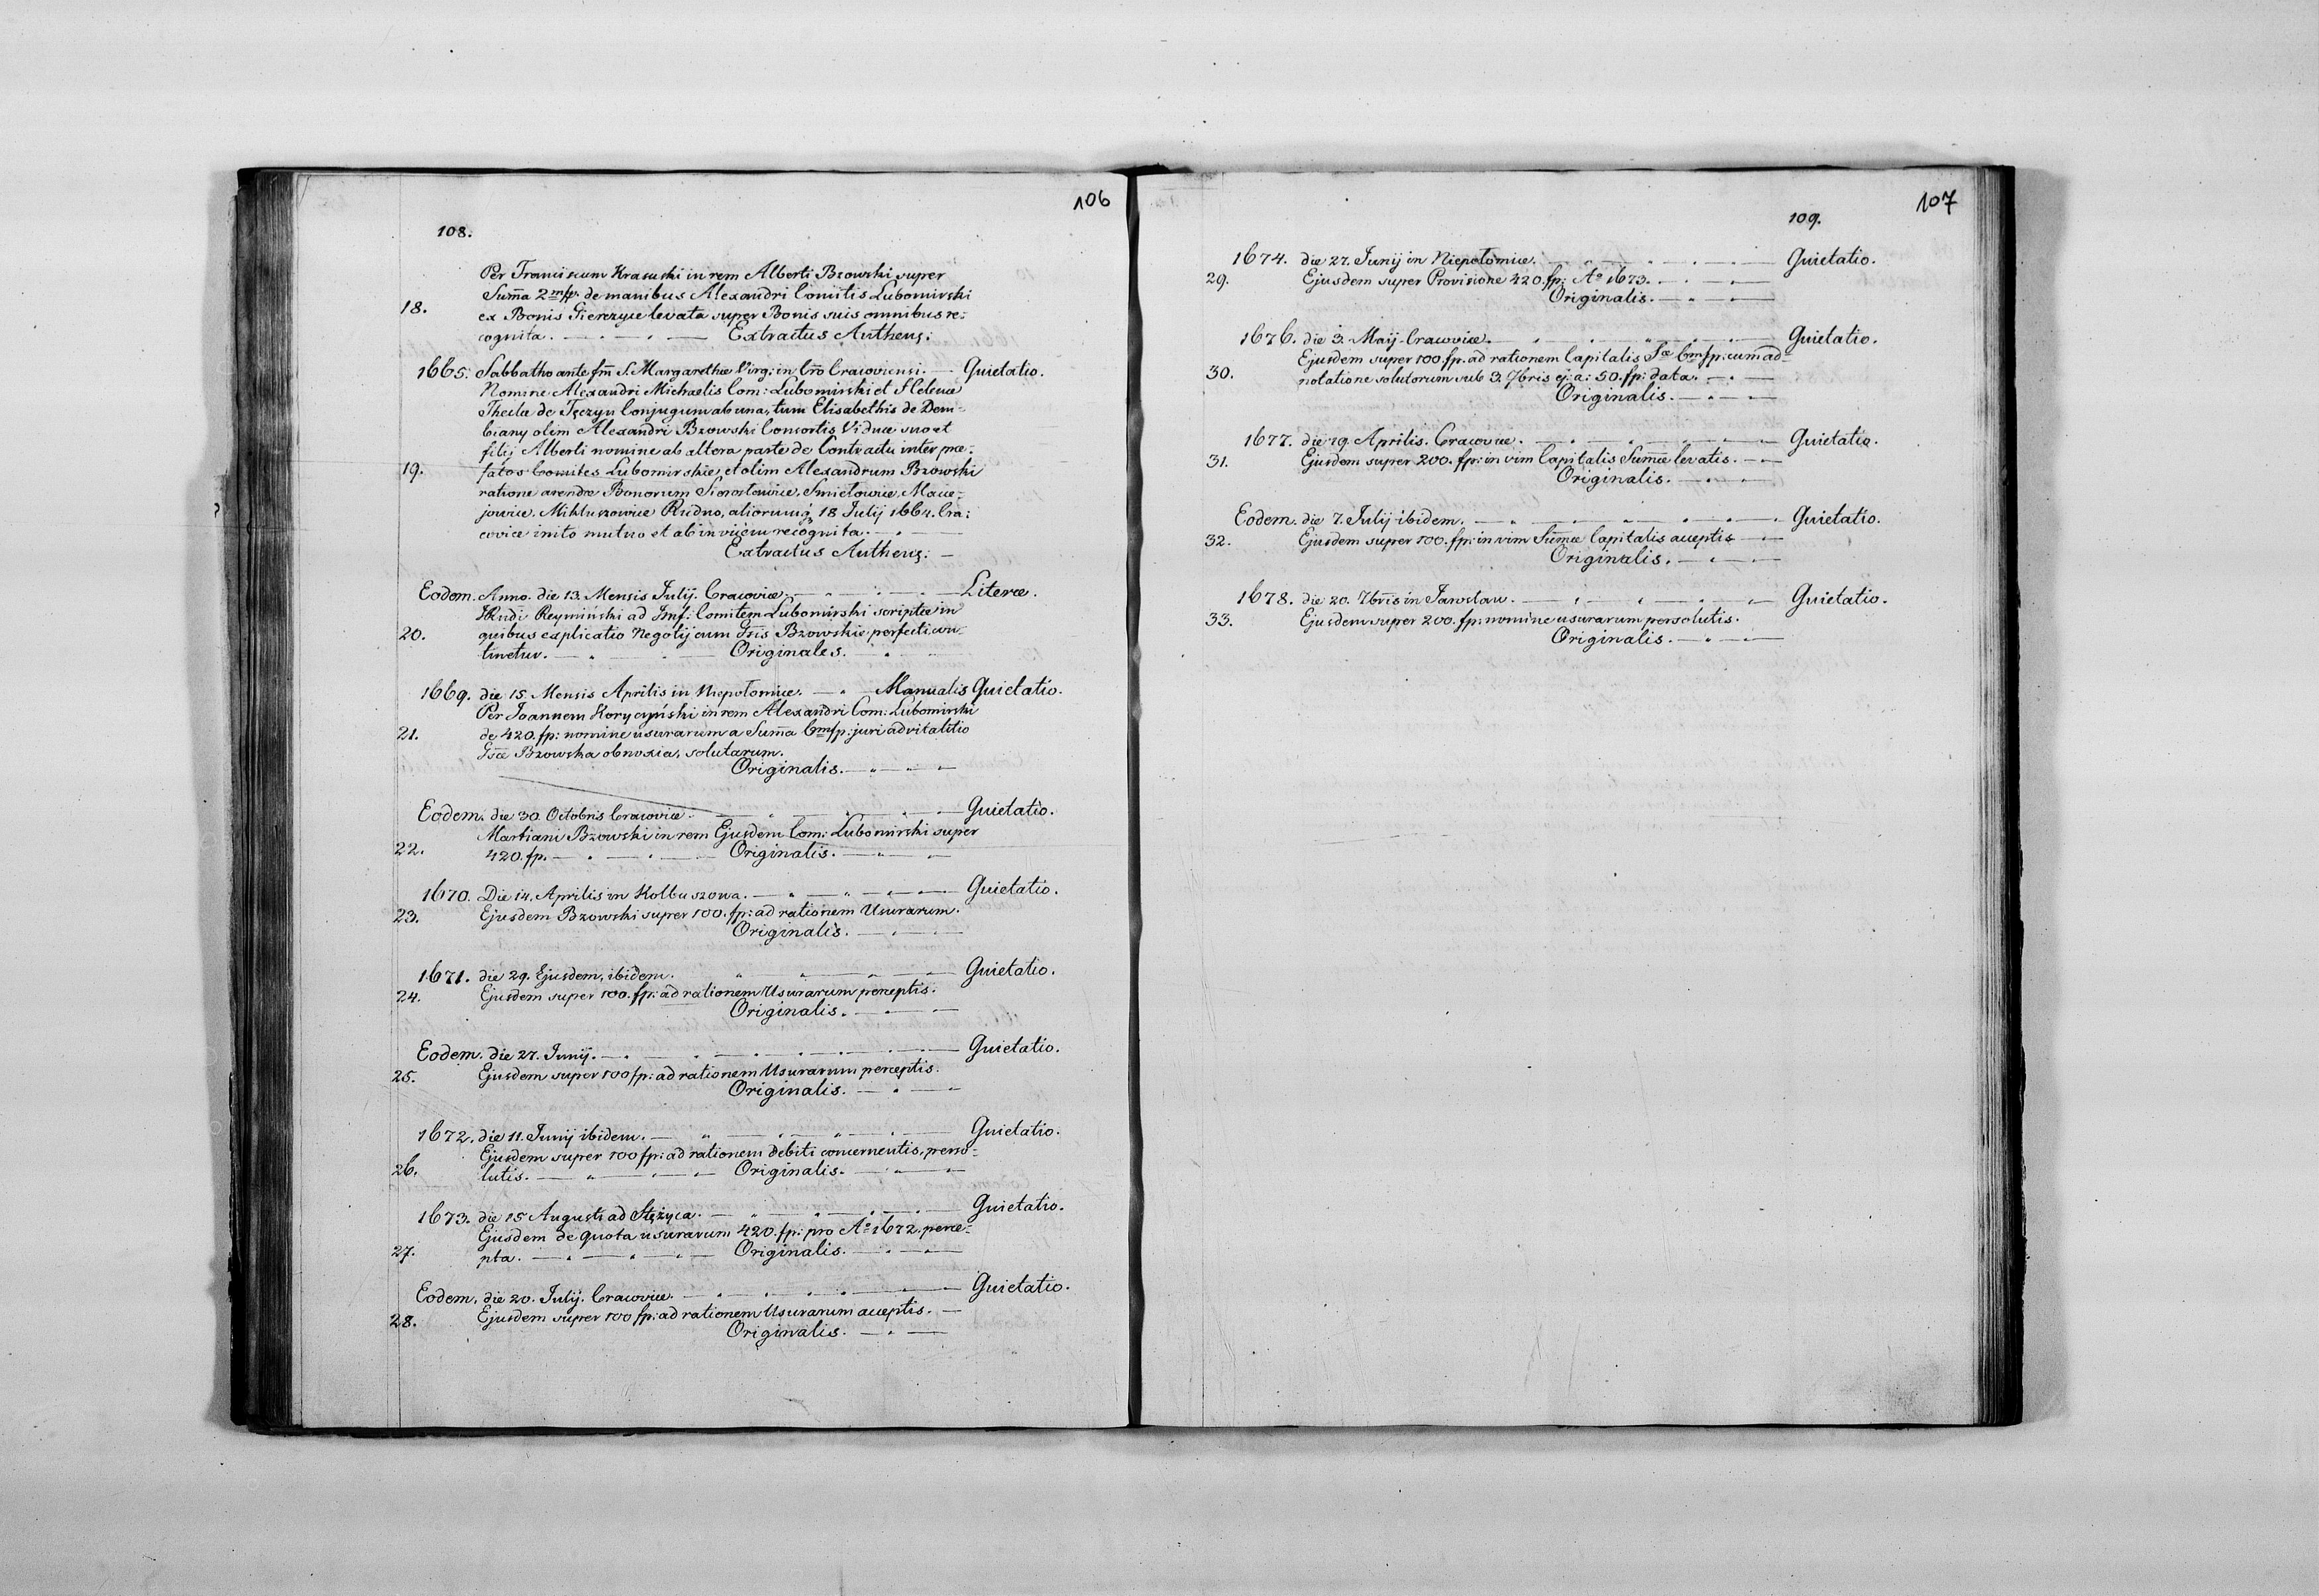 106
108.
Per Franciscum Krasuski in rem Alberti Bzowski super
18. Sum̃a 2m/fp. de manibus Alexandri Comitis Lubomirski
ex Bonis Gierczyce levata super Bonis suis omnibus re:
cognita. Extractus Authens:
1665. Sabbatho ante fm̃ S. Margarethæ Virg: in Cr̃o Cracoviensi. Quietatio.
Nomine Alexandri Michaelis Com: Lubomirski et Helenæ
Theclæ de Tęczyn Conjugum ab una, tum Elisabethis de Dem-
biany olim Alexandri Bzowski Consortis Viduæ suo et
filij Alberti nomine ab altera parte de Contractu inter præ:
19. fatos Comites Lubomirskie, et olim Alexandrum Bzowski
ratione arendæ Bonorum Sierosławice, Smiełowice, Macie:
jowice, Mikluszowice Rudno, aliorumq 18 Julij 1664. Cra:
coviæ inito mutuo et ab invicem recognita.
Extractus Authens:
Eodem Anno. die 13. Mensis Julij. Cracoviæ. Literæ.
Rudi Reymiński ad Jmf: Comitem Lubomirski scriptæ in
20. quibus explicatio Negotij cum Gsis Bzowskie perfecti con-
tinetur. Originales.
1669. die 15. Mensis Aprilis in Niepołomice. Manualis Quietatio.
Per Joannem Koryczyński in rem Alexandri Com: Lubomirski
21. de 420. fp: nomine usurarum a Sum̃a 6m/fp: juri advitalitio
Gsæ Bzowska obnoxia, solutarum.
Originalis.
Eodem. die 30. Octobris Cracoviæ. Quietatio.
Martiani Bzowski in rem Ejusdem Com: Lubomirski super
22. 420. fp. Originalis.
1670. Die 14. Aprilis in Kolbuszowa. Quietatio.
23. Ejusdem Bzowski super 100. fp: ad rationem Usurarum.
Originalis.
1671. die 29. Ejusdem, ibidem. Quietatio.
24. Ejusdem super 100. fp: ad rationem Usurarum perceptis.
Originalis.
Eodem. die 27. Junij. Quietatio.
25. Ejusdem super 100 fp: ad rationem Usurarum perceptis.
Originalis.
1672. die 11. Junij ibidem. Quietatio.
Ejusdem super 100 fp: ad rationem debiti concernentis, perso-
26. lutis. Originalis.
1673. die 15 Augusti ad Stężyca. Quietatio.
Ejusdem de quota usurarum 420. fp: pro Aº 1672. perce-
27. pta. Originalis.
Eodem. die 20. Julij. Cracoviæ. Quietatio.
28. Ejusdem super 100 fp: ad rationem Usurarum acceptis.
Originalis.
107
109.
1674. die 27. Junij in Niepołomice. Quietatio.
29. Ejusdem super Provisione 420. fp: Aº 1673.
Originalis.
1676. die 3. Maij. Cracoviæ. Quietatio.
Ejusdem super 100. fp. ad rationem Capitalis Sæ 6m/fp: cum ad-
30. notatione solutorum sub 3. 7bris ej: a: 50. fp: data.
Originalis.
1677. die 19. Aprilis. Cracoviæ. Quietatio.
31. Ejusdem super 200. fp: in vim Capitalis Sum̃æ levatis.
Originalis.
Eodem. die 7. Julij ibidem. Quietatio.
32. Ejusdem super 100. fp: in vim Sum̃æ Capitalis acceptis
Originalis.
1678. die 20. 7bris in Jarosław. Quietatio.
33. Ejusdem super 200. fp: nomine usurarum persolutis.
Originalis.